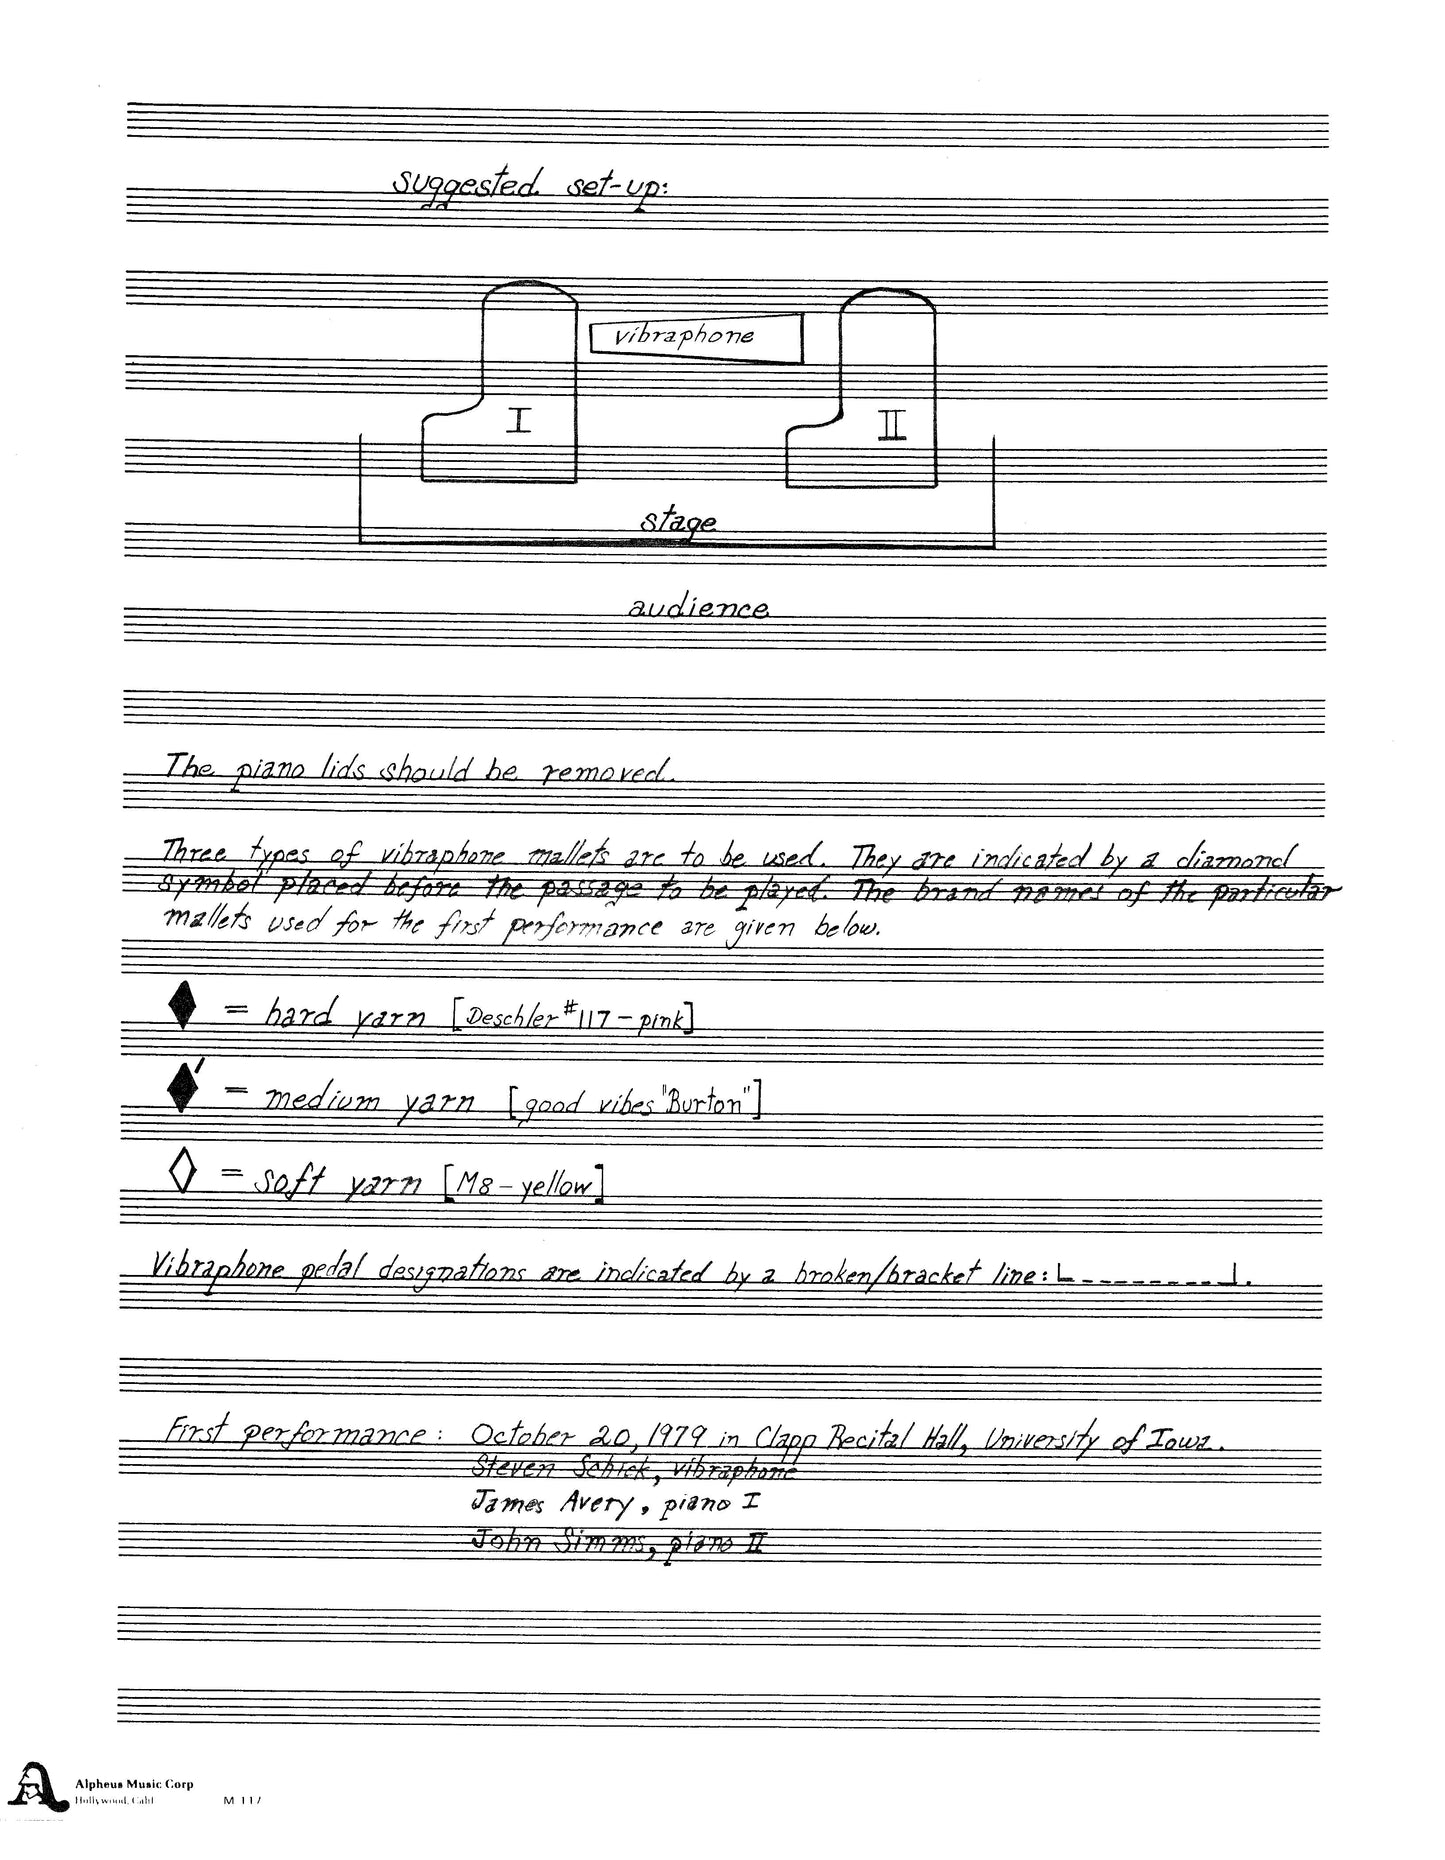 suggested set-up:
vibraphone
I
II
stage
audience
The piano lids should be removed.
Three types of vibraphone mallets are to be used. They are indicated by a diamond
symbol placed before the passage to be played. The brand names of the particular
mallets used for the first performance are given below.
♦ = hard yarn [Deschler #117 – pink]
♦′ = medium yarn [good vibes "Burton"]
◊ = soft yarn [M8 – yellow]
Vibraphone pedal designations are indicated by a broken/bracket line: |_ _ _ _ _ _ _ _ _|.
First performance: October 20, 1979 in Clapp Recital Hall, University of Iowa.
Steven Schick, vibraphone
James Avery, piano I
John Simms, piano II
Alpheus Music Corp
Hollywood, Calif M 117